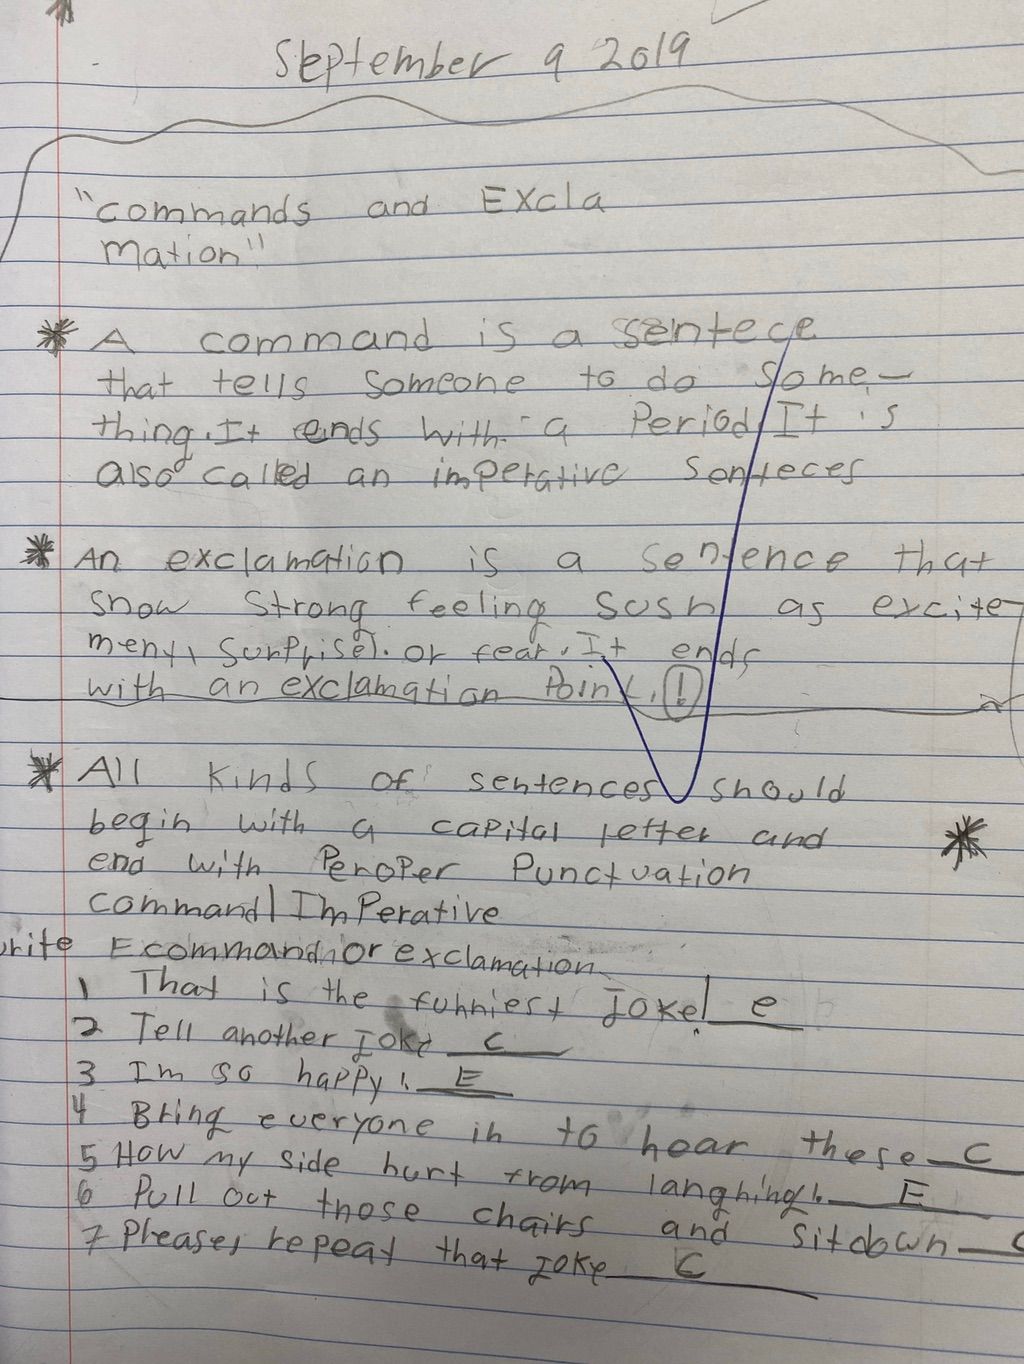 September 9 2019
"commands and Excla
mation"
* A command is a sentece
that tells someone to do some-
thing. It ends with a Period. It is
also called an imperative senteces
* An exclamation is a sentence that
snow strong feeling sush as excite-
ment, surprise). or fear. It ends
with an exclamation Point. (!)
* All kinds of sentences should
begin with a capital letter and *
end with Peroper Punctuation
command/Imperative
write E command or exclamation
1 That is the funniest joke! e
2 Tell another joke C
3 Im so happy!. E
4 Bring everyone in to hear these C
5 How my side hurt from langhing!. E
6 Pull out those chairs and sitdown C
7 Please, repeat that joke C